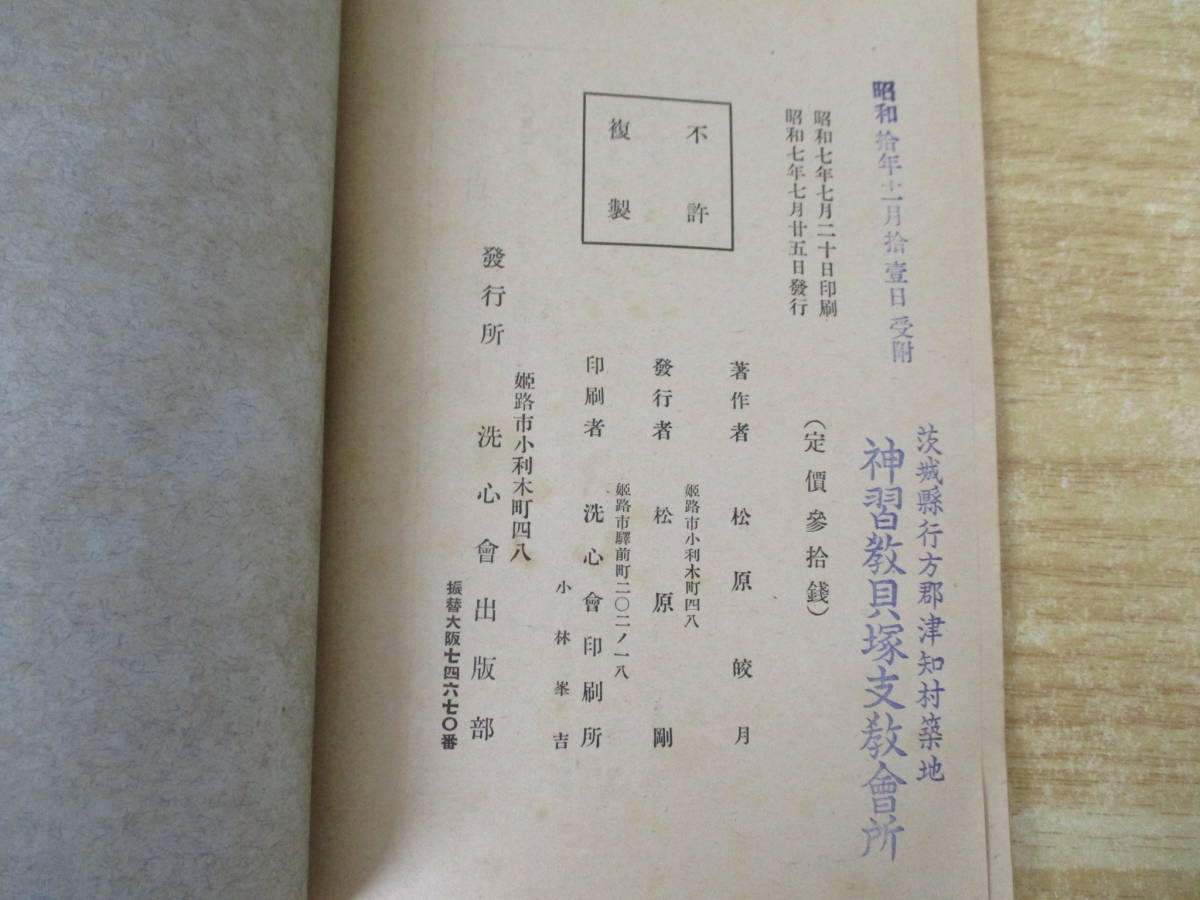 昭和拾年十一月拾壹日受附
茨城縣行方郡津知村築地
神習敎貝塚支敎會所
昭和七年七月二十日印刷
昭和七年七月廿五日發行
(定價參拾錢)
不許
複製
著作者 松原皎月
姬路市小利木町四八
發行者 松原剛
姬路市驛前町二〇二ノ一八
印刷者 洗心會印刷所
小林峯吉
姬路市小利木町四八
發行所 洗心會出版部
振替大阪七四六七〇番